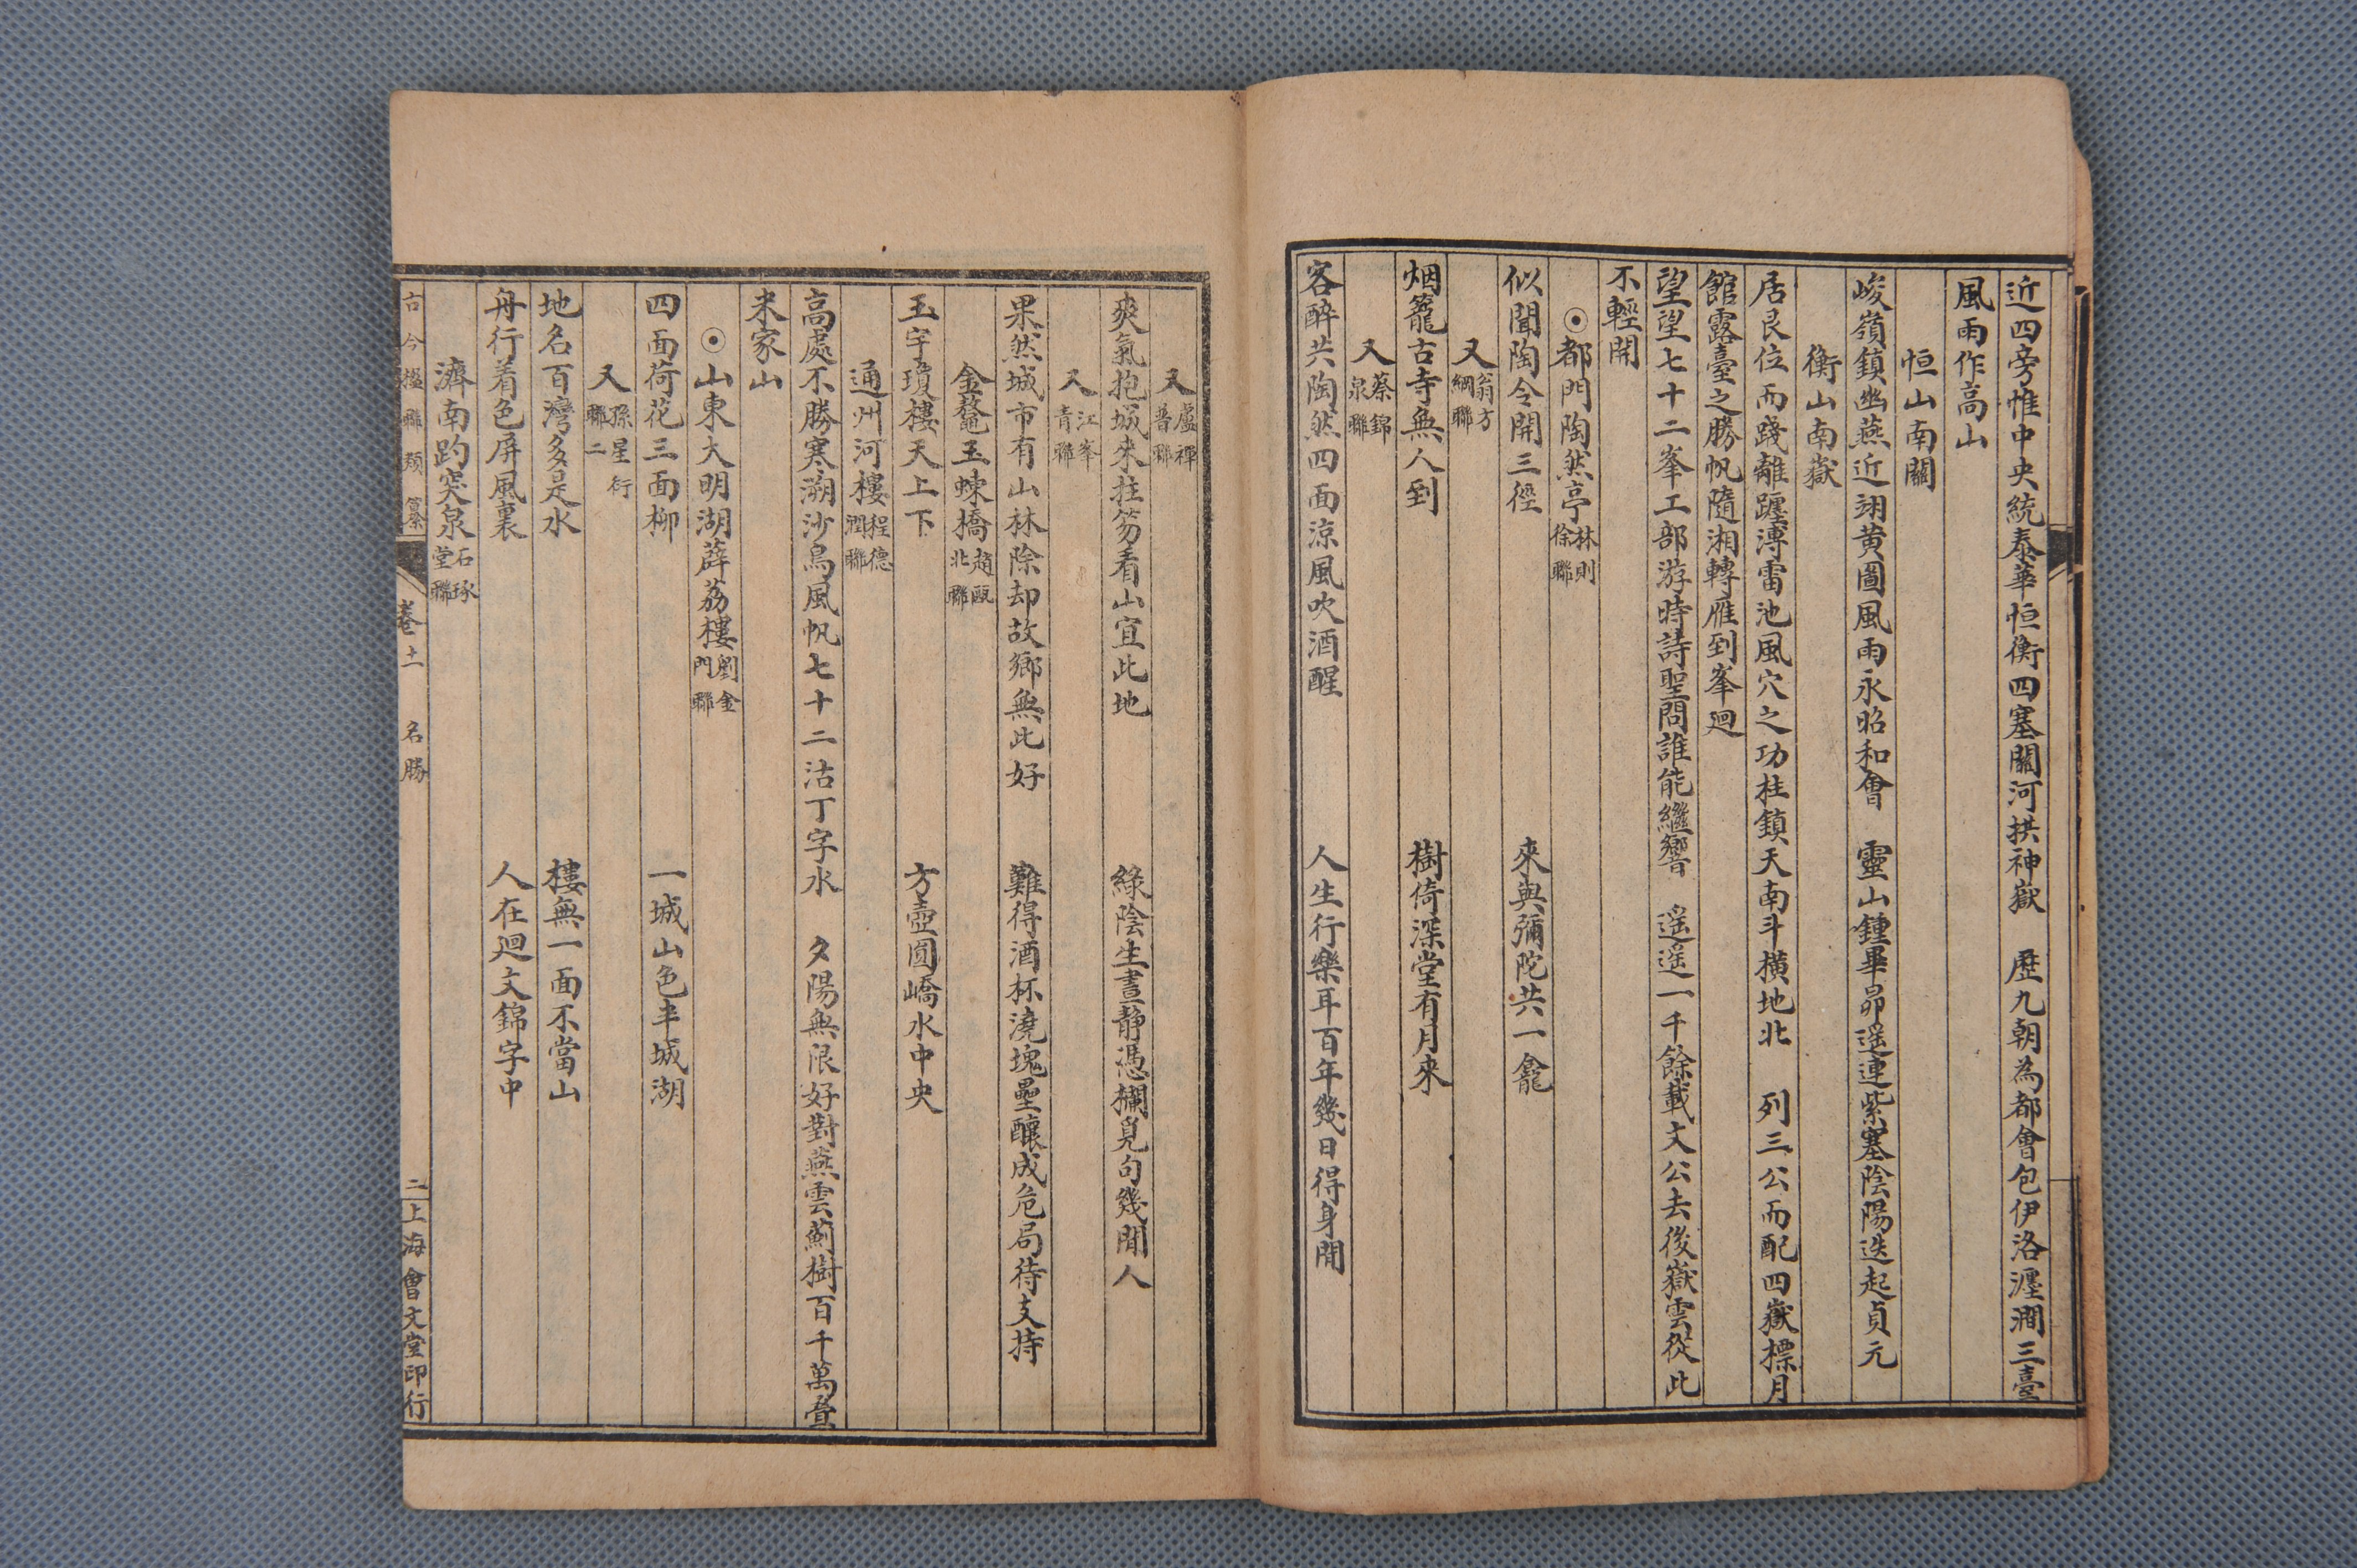 近四旁惟中央統泰華恒衡四塞關河拱神嶽　歷九朝為都會包伊洛瀍澗三臺
風雨作高山
恒山南關
峻嶺鎮幽燕近翊黃圖風雨永昭和會　靈山鍾畢昴遥連紫塞陰陽迭起貞元
衡山南嶽
居艮位而踐離躔溥雷池風穴之功柱鎮天南斗橫地北　列三公而配四嶽標月
館露臺之勝帆隨湘轉雁到峯迴
望望七十二峯工部游時詩聖問誰能繼響　遥遥一千餘載文公去後嶽雲從此
不輕開
⊙都門陶然亭林則徐聯
似聞陶令開三徑　來與彌陀共一龕
又翁方綱聯
烟籠古寺無人到　樹倚深堂有月來
又蔡錦泉聯
客醉共陶然四面涼風吹酒醒　人生行樂耳百年幾日得身閒
又盧襌普聯
爽氣抱城來拄笏看山宜此地　綠陰生晝静憑欄覓句幾閒人
又江峯青聯
果然城市有山林除却故鄉無此好　難得酒杯澆塊壘釀成危局待支持
金鼇玉蝀橋趙甌北聯
玉宇瓊樓天上下　方壺圓嶠水中央
通州河樓程德潤聯
高處不勝寒溯沙鳥風帆七十二沽丁字水　夕陽無限好對燕雲薊樹百千萬疊
米家山
⊙山東大明湖薜荔樓劉金門聯
四面荷花三面柳　一城山色半城湖
又孫星衍聯二
地名百灣多是水　樓無一面不當山
舟行着色屏風裏　人在迴文錦字中
濟南趵突泉石琢堂聯
古今楹聯類纂　卷十一　名勝　二　上海會文堂印行